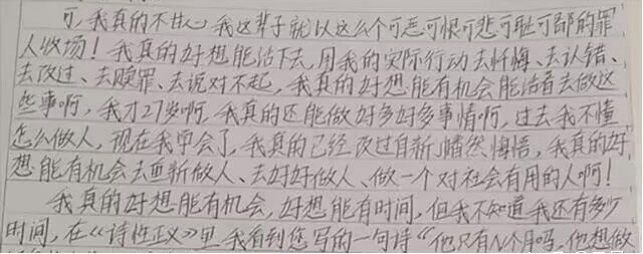 可,我真的不甘心我这辈子就以这么个可恶可恨可悲可耻可鄙的罪
人收场!我真的好想能活下去,用我的实际行动去忏悔、去认错、
去改过、去赎罪、去说对不起,我真的好想能有机会能活着去做这
些事啊,我才27岁啊,我真的还能做好多好多事情啊,过去我不懂
怎么做人,现在我学会了,我真的已经改过自新、幡然悔悟,我真的好
想能有机会去重新做人、去好好做人、做一个对社会有用的人啊!
我真的好想能有机会,好想能有时间,但我不知道我还有多少
时间,在《诗性正义》里,我看到您写的一句诗“他只有N个月吗,他想做